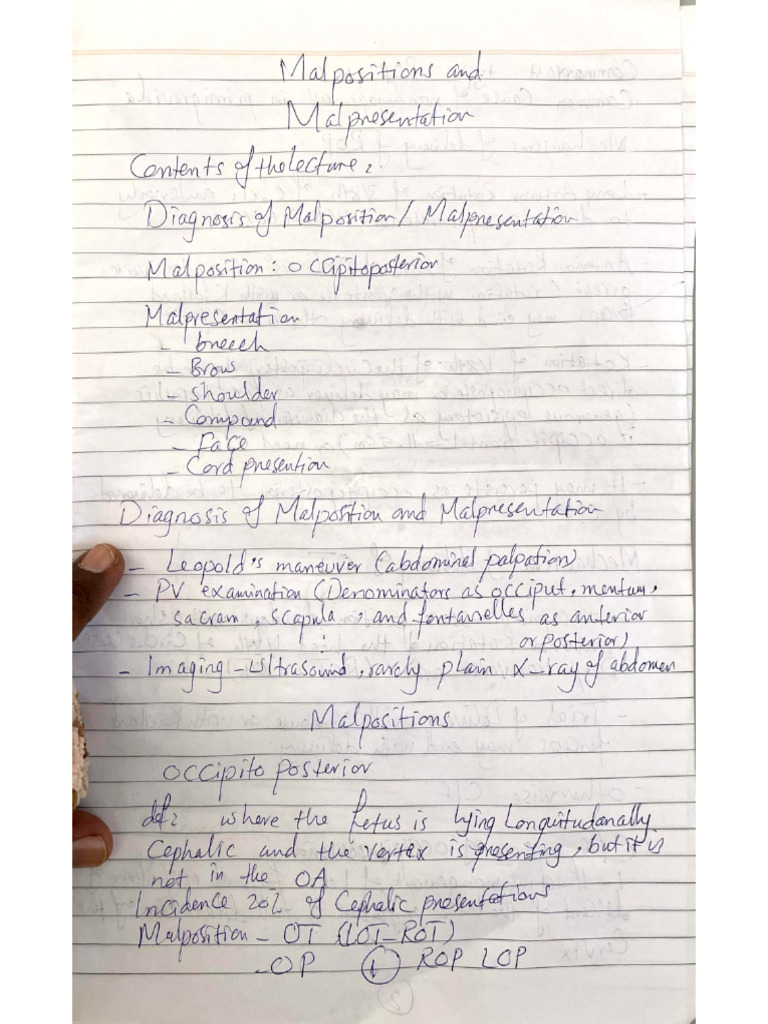 Malpositions and
Malpresentation
Contents of the Lecture:
Diagnosis of Malposition / Malpresentation
Malposition: occipitoposterior
Malpresentation
- breech
- Brows
- shoulder
- Compound
- Face
- Cord presention
Diagnosis of Malposition and Malpresentation
- Leopold's maneuver (abdominal palpation)
- PV examination (Denominators as occiput, mentum,
sacram, scapula, and fontanelles as anterior
or posterior)
- Imaging - ultrasound, rarely plain X-ray of abdomen
Malpositions
occipito posterior
def: where the fetus is lying Longitudanally
Cephalic and the vertex is presenting, but it is
not in the OA
Incidence 20% of Cephalic presentations
Malposition - OT (LOT-ROT)
- OP ① ROP LOP